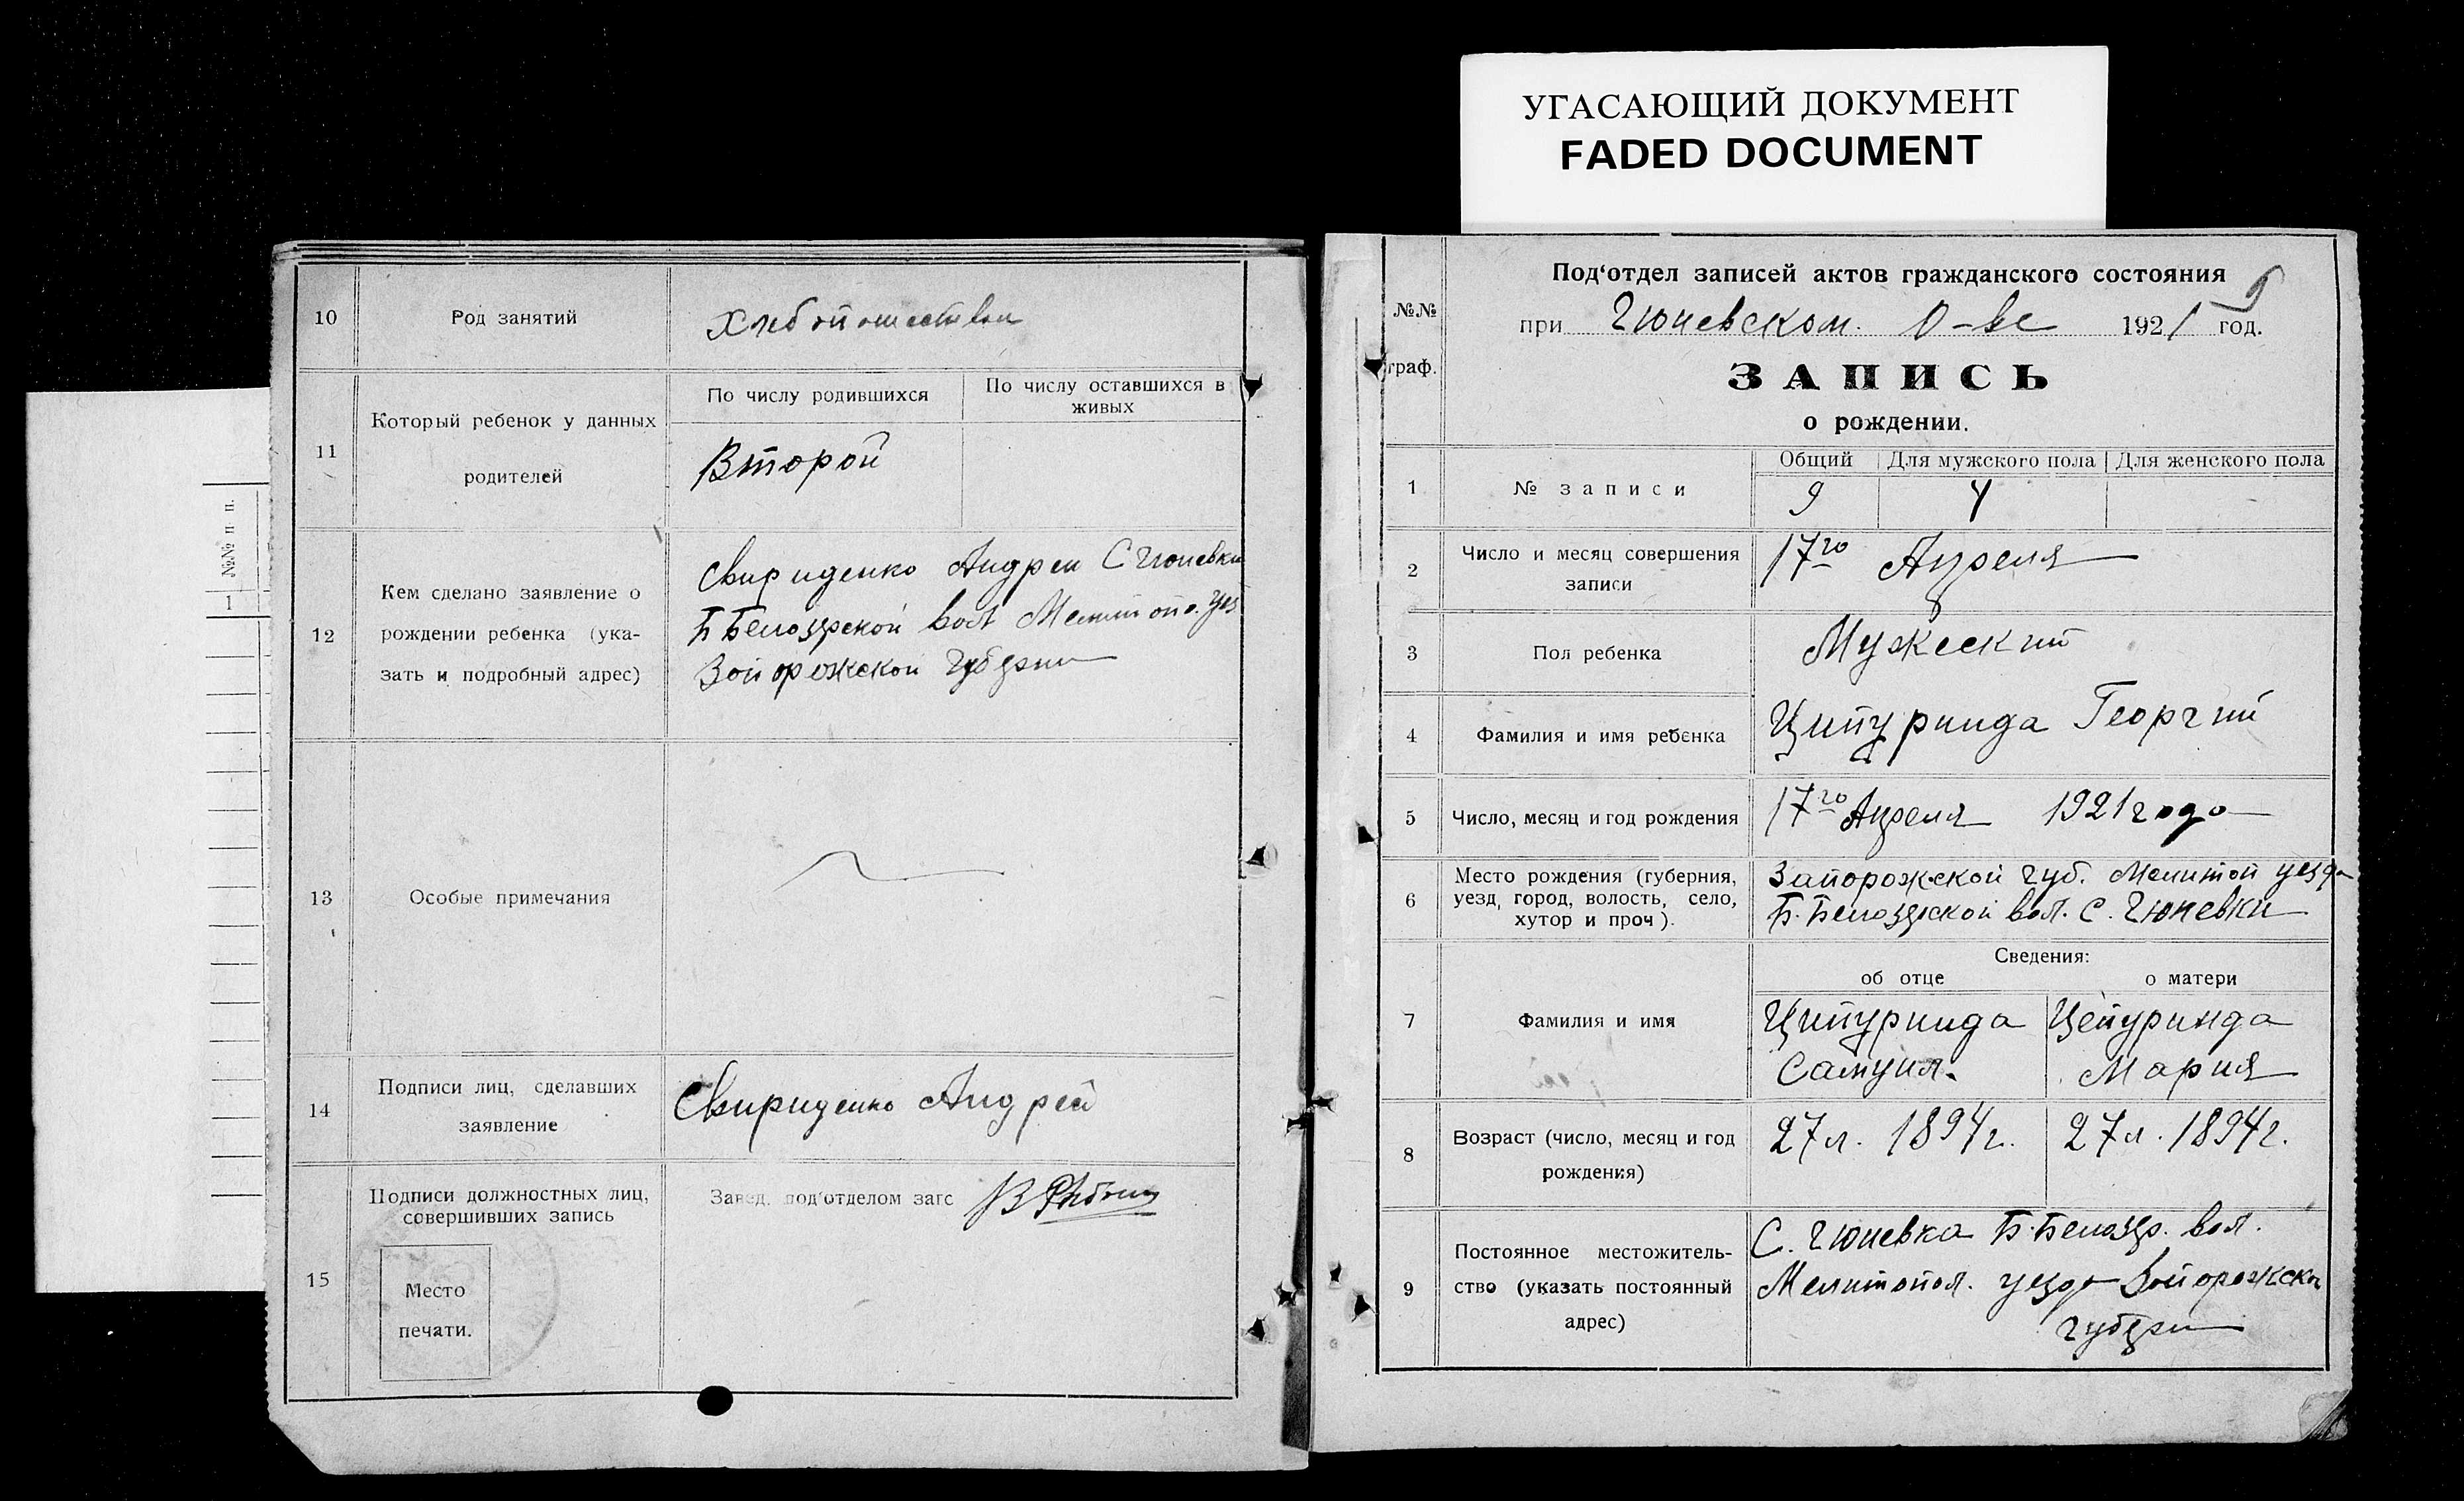 УГАСАЮЩИЙ ДОКУМЕНТ
FADED DOCUMENT
№№ п п.
1
10
Род занятий
11
Который ребенок у данных
родителей
По числу родившихся
По числу оставшихся в
живых
Второй
12
Кем сделано заявление о
рождении ребенка (ука-
зать и подробный адрес)
Свириденко Андрей С Гюневки
Б Белозерской вол Мелитоп. уез
Запорожской Губернии
13
Особые примечания
14
Подписи лиц, сделавших
заявление
Свириденко Андрей
15
Подписи должностных лиц,
совершивших запись
Место
печати.
Завед. под'отделом загс
№№
граф.
Под'отдел записей актов гражданского состояния
9
при Гюневском О-ве 1921 год.
ЗАПИСЬ
о рождении.
1
№ записи
Общий
Для мужского пола
Для женского пола
9
4
2
Число и месяц совершения
записи
17го Апреля
3
Пол ребенка
Мужеский
4
Фамилия и имя ребенка
Ципуринда Георгий
5
Число, месяц и год рождения
17го Апреля 1921 года
6
Место рождения (губерния,
уезд, город, волость, село,
хутор и проч).
Запорожской губ. Мелитоп уезда
Б. Белозерской вол. С. Гюневки
Сведения:
об отце
о матери
7
Фамилия и имя
Ципуринда
Самуил.
Цепуринда
Мария
8
Возраст (число, месяц и год
рождения)
27 л. 1894 г.
27 л. 1894 г.
9
Постоянное местожитель-
ство (указать постоянный
адрес)
С. Гюневка Б. Белозер. вол.
Мелитопол. уезда Запорожской
губерни